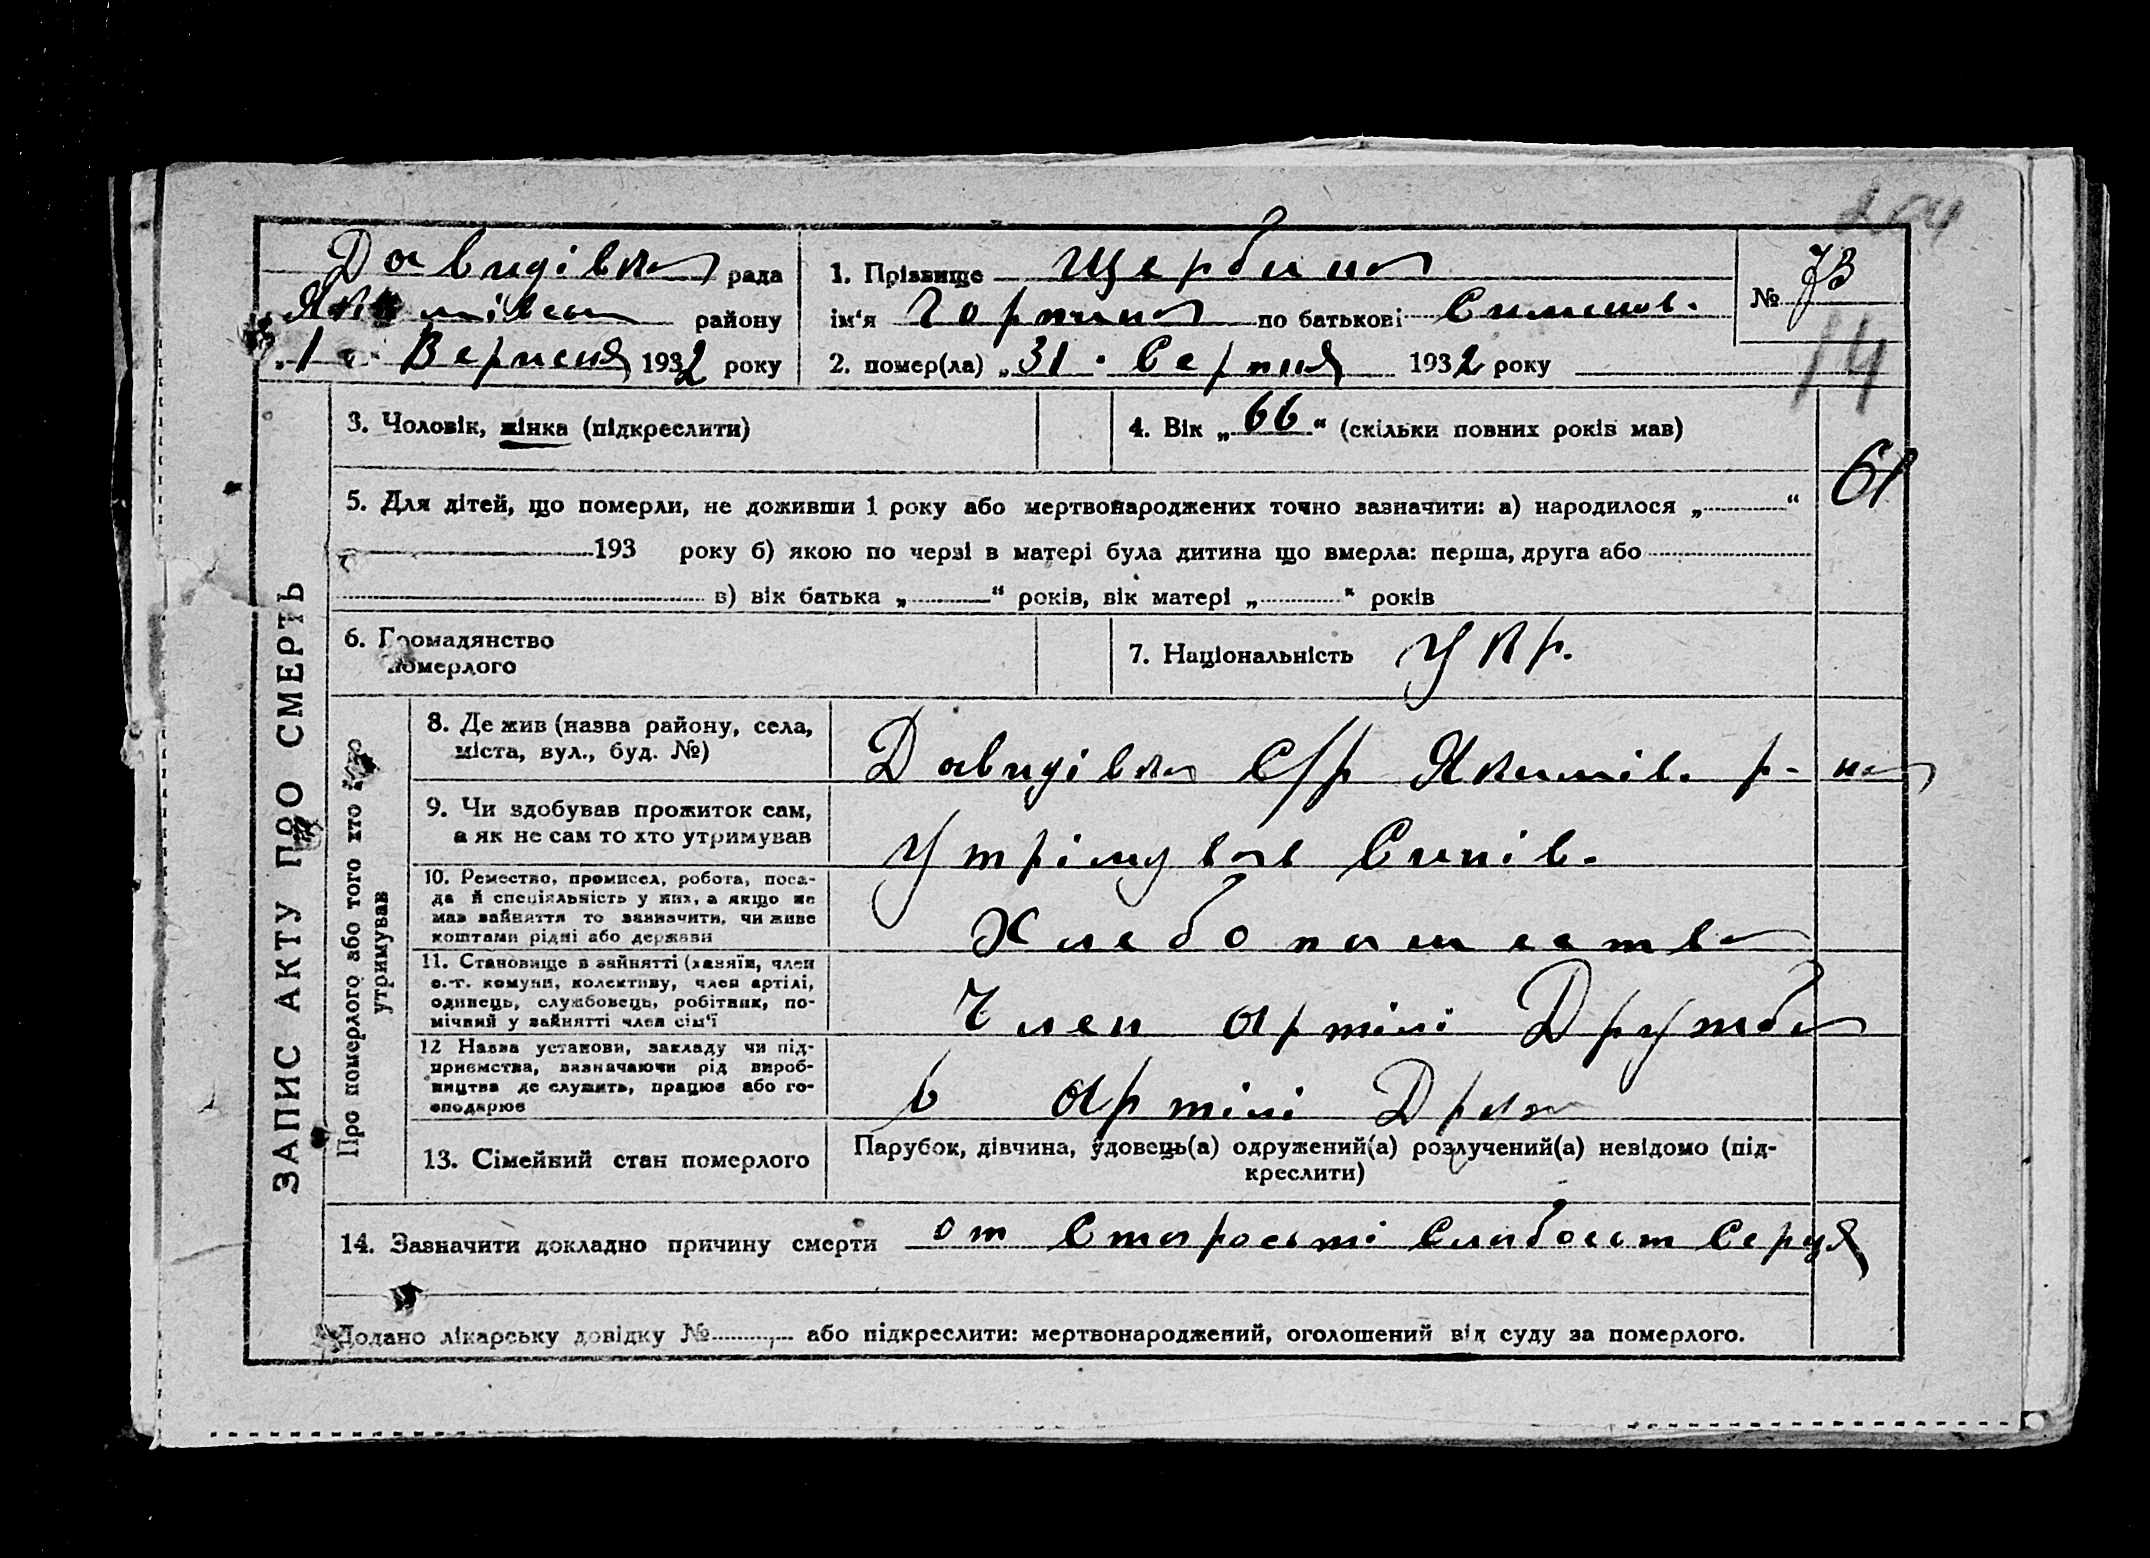 204
Давидівка рада
Якимівськ району
"1" Вересня 1932 року
1. Прізвище Щербина
ім'я Горпина по батькові Сименов.
2. помер(ла) „31" Серпня 1932 року
№ 73
14
ЗАПИС АКТУ ПРО СМЕРТЬ
3. Чоловік, жінка (підкреслити)
4. Вік „66" (скільки повних років мав)
61
5. Для дітей, що померли, не доживши 1 року або мертвонароджених точно зазначити: а) народилося „ "
193 року б) якою по черзі в матері була дитина що вмерла: перша, друга або
в) вік батька „ " років, вік матері „ " років
6. Громадянство
померлого
7. Національність Укр.
Про померлого або того хто його
утримував
8. Де жив (назва району, села,
міста, вул., буд. №)
Давидівка С/р Якимів. р-на
9. Чи здобував прожиток сам,
а як не сам то хто утримував
Утрімував Синів.
10. Ремество, промисел, робота, поса-
да й спеціяльність у них, а якщо не
мав зайняття то зазначити, чи живе
коштами рідні або держави
Хлебопашество
11. Становище в зайнятті (хазяїн, член
с.-г. комуни, колективу, член артілі,
одинець, службовець, робітник, по-
мічний у зайнятті член сім'ї
Член артілі Дружба
12 Назва установи, закладу чи під-
приємства, зазначаючи рід вироб-
ництва де служить, працює або го-
сподарює
в артілі
13. Сімейний стан померлого
Парубок, дівчина, удовець(а) одружений(а) розлучений(а) невідомо (під-
креслити)
14. Зазначити докладно причину смерти от Старості Слабост Серця
Додано лікарську довідку № або підкреслити: мертвонароджений, оголошений від суду за померлого.